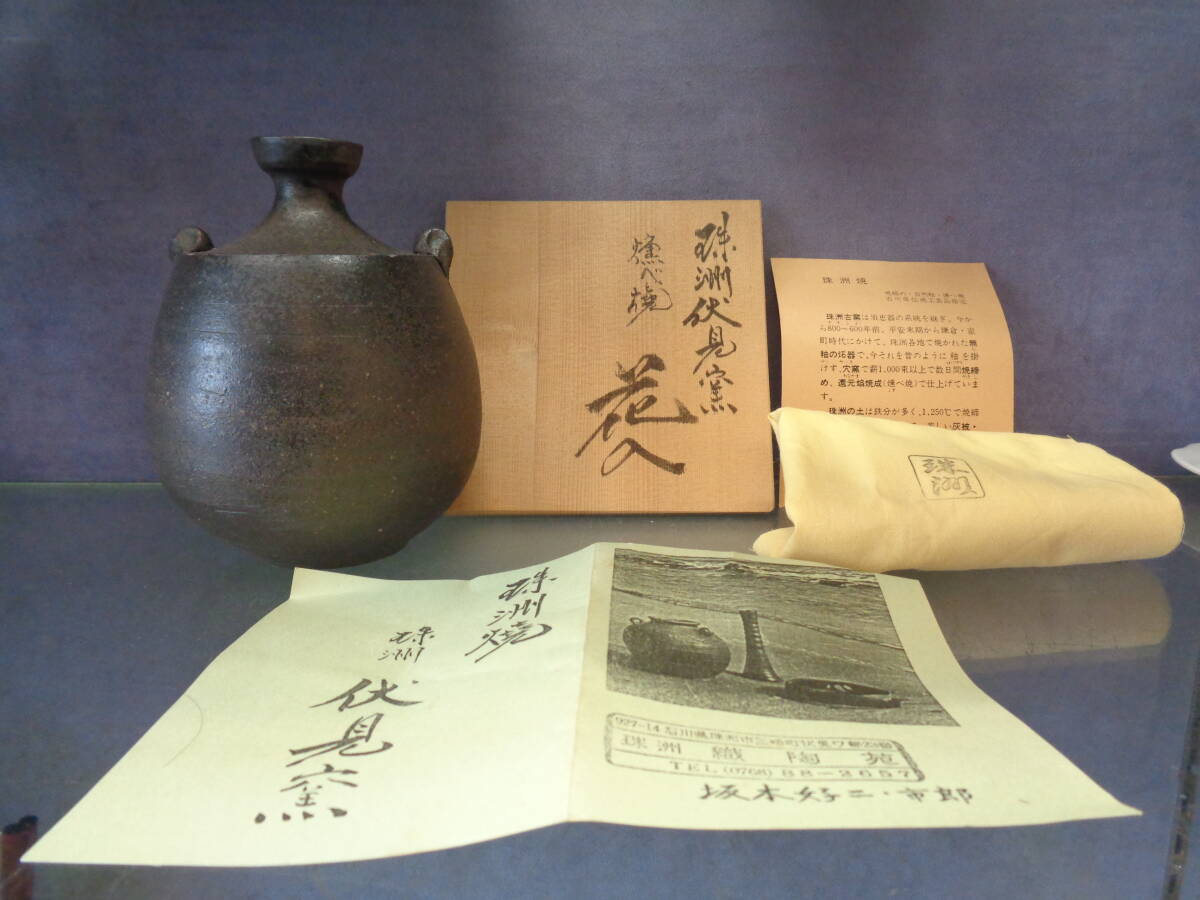 珠洲伏見窯
燻べ焼
花入
珠洲焼
珠洲古窯は須恵器の系統を継ぎ、今か
ら800〜600年前、平安末期から鎌倉・室
町時代にかけて、珠洲各地で焼かれた無
釉の炻器で、今それを昔のように釉を掛
けず、穴窯で薪1,000束以上で数日間焼締
め、還元焰焼成(燻べ焼)で仕上げていま
す。
珠洲の土は鉄分が多く、1,250℃で焼締
珠洲
珠洲焼
珠洲
伏見窯
珠洲織陶苑
TEL (0768) 88-2657
坂本好二・市郎